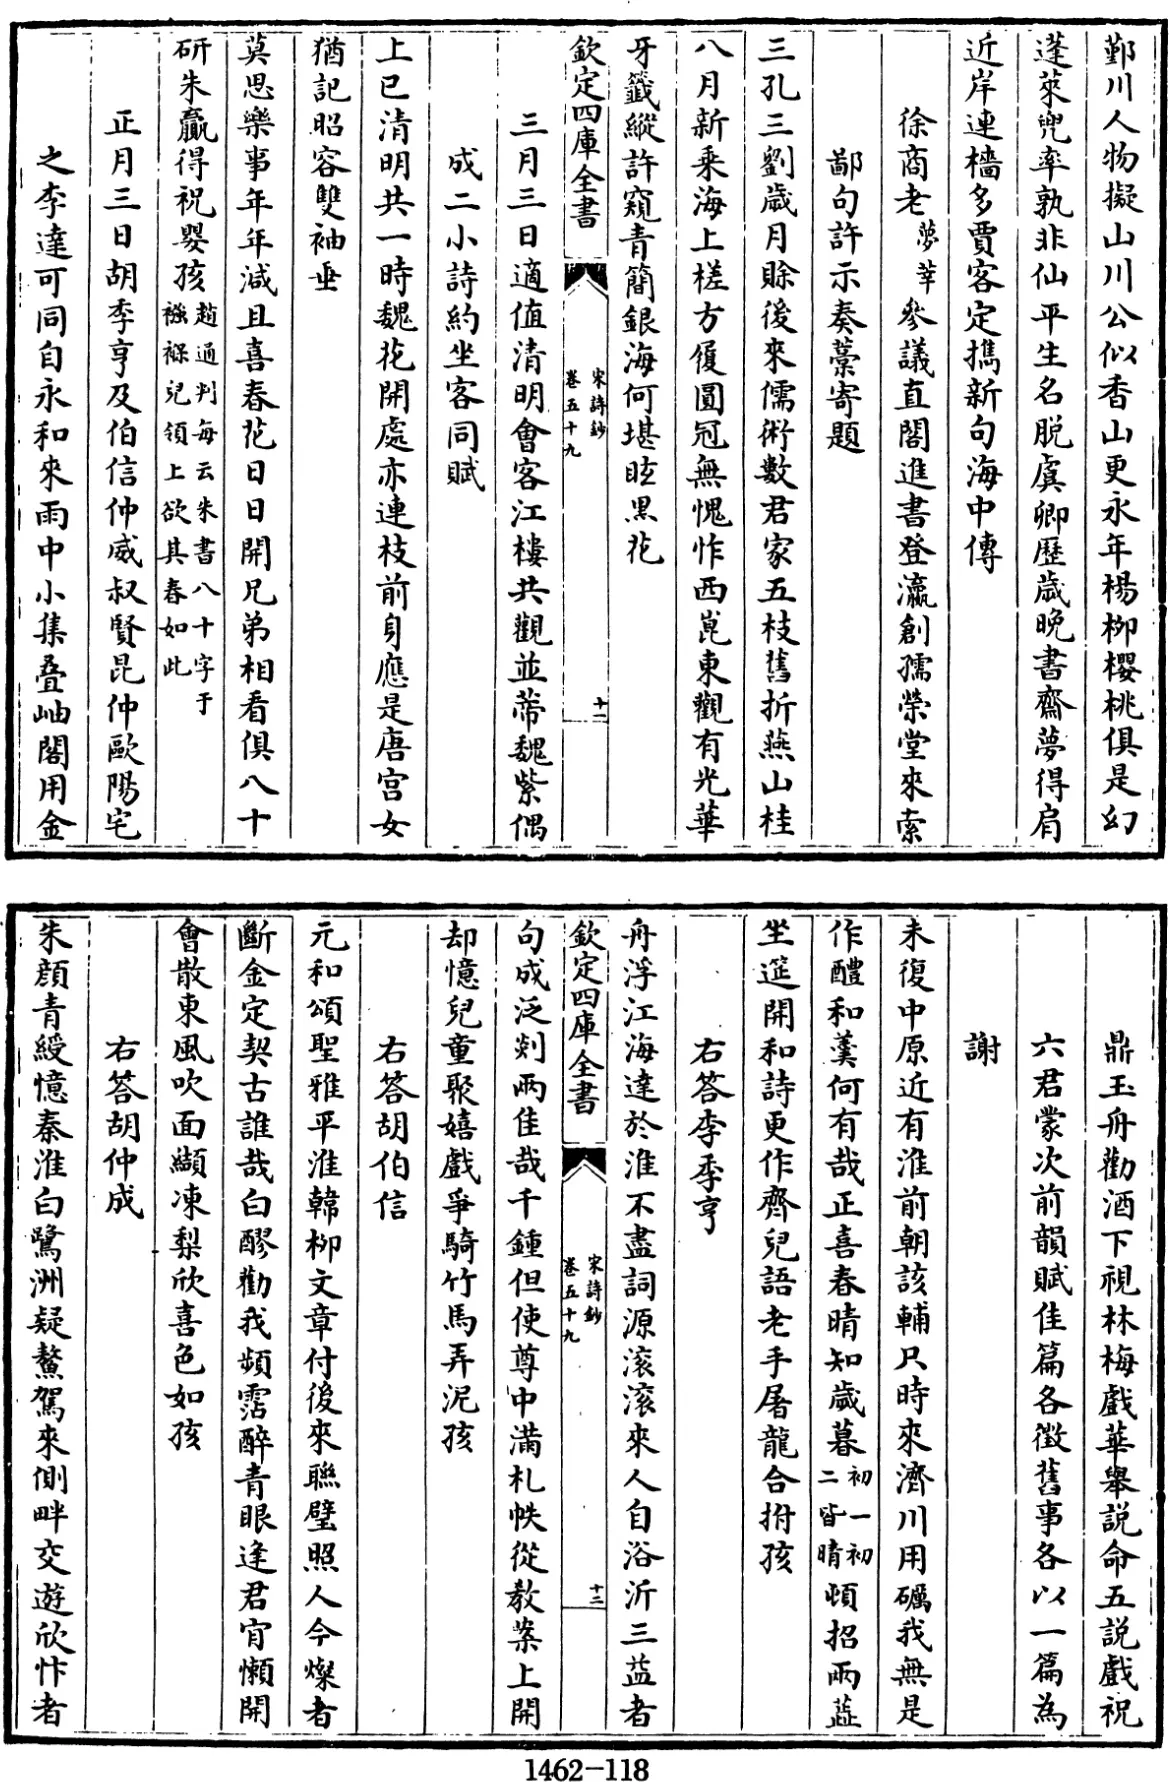 鄞川人物擬山川公似香山更永年楊柳櫻桃俱是幻
蓬萊兜率孰非仙平生名脱虞卿歷歲晚書齋夢得肩
近岸連檣多賈客定攜新句海中傳
徐商老夢莘參議直閣進書登瀛創孺榮堂來索
鄙句許示奏藁寄題
三孔三劉歲月賒後來儒術數君家五枝舊折燕山桂
八月新乘海上槎方履圓冠無愧怍西崑東觀有光華
牙籤縱許窺青簡銀海何堪眩黒花
欽定四庫全書
宋詩鈔
卷五十九
十一
三月三日適值清明會客江樓共觀並蒂魏紫偶
成二小詩約坐客同賦
上巳清明共一時魏花開處亦連枝前身應是唐宫女
猶記昭容雙袖垂
莫思樂事年年減且喜春花日日開兄弟相看俱八十
研朱贏得祝嬰孩趙通判每云朱書八十字于
襁褓兒領上欲其春如此
正月三日胡季亨及伯信仲威叔賢昆仲歐陽宅
之李達可同自永和來雨中小集叠岫閣用金
鼎玉舟勸酒下視林梅戲華舉説命五説戲祝
六君蒙次前韻賦佳篇各徵舊事各以一篇為
謝
未復中原近有淮前朝該輔只時來濟川用礪我無是
作醴和羹何有哉正喜春晴知歲暮初一初
二皆晴頓招兩藍
坐筵開和詩更作齊兒語老手屠龍合拊孩
右答李季亨
舟浮江海達於淮不盡詞源滚滚來人自浴沂三益者
欽定四庫全書
宋詩鈔
卷五十九
十二
句成泛剡兩佳哉千鍾但使尊中滿札帙從教案上開
却憶兒童聚嬉戲爭騎竹馬弄泥孩
右答胡伯信
元和頌聖雅平淮韓柳文章付後來聮璧照人今燦者
斷金定契古誰哉白醪勸我頻霑醉青眼逢君肎懶開
會散東風吹面纈凍梨欣喜色如孩
右答胡仲成
朱顔青綬憶秦淮白鷺洲疑鰲駕來側畔交遊欣忭者
1462-118